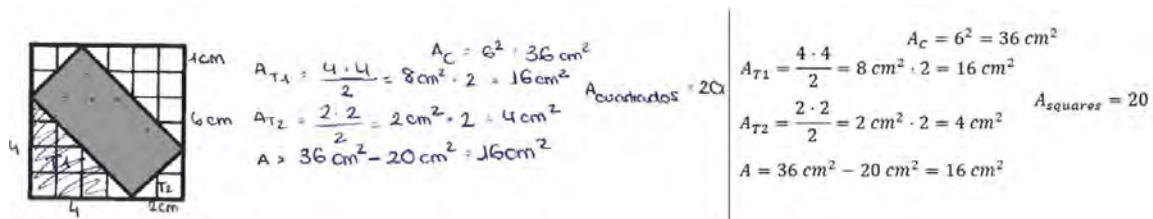 1cm
6cm
4
T1
T2
4
2cm
A_C = 6² = 36 cm²
A_T1 = 4 · 4 / 2 = 8cm² · 2 = 16cm²
A_cuadrados = 20
A_T2 = 2 · 2 / 2 = 2cm² · 2 = 4cm²
A = 36 cm² - 20 cm² = 16cm²
A_C = 6² = 36 cm²
A_T1 = 4 · 4 / 2 = 8 cm² · 2 = 16 cm²
A_squares = 20
A_T2 = 2 · 2 / 2 = 2 cm² · 2 = 4 cm²
A = 36 cm² − 20 cm² = 16 cm²